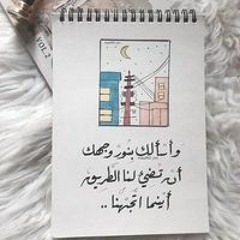 وأسألك بنور وجهك
أن تضيئ لنا الطريق
أينما اتجهنا ..